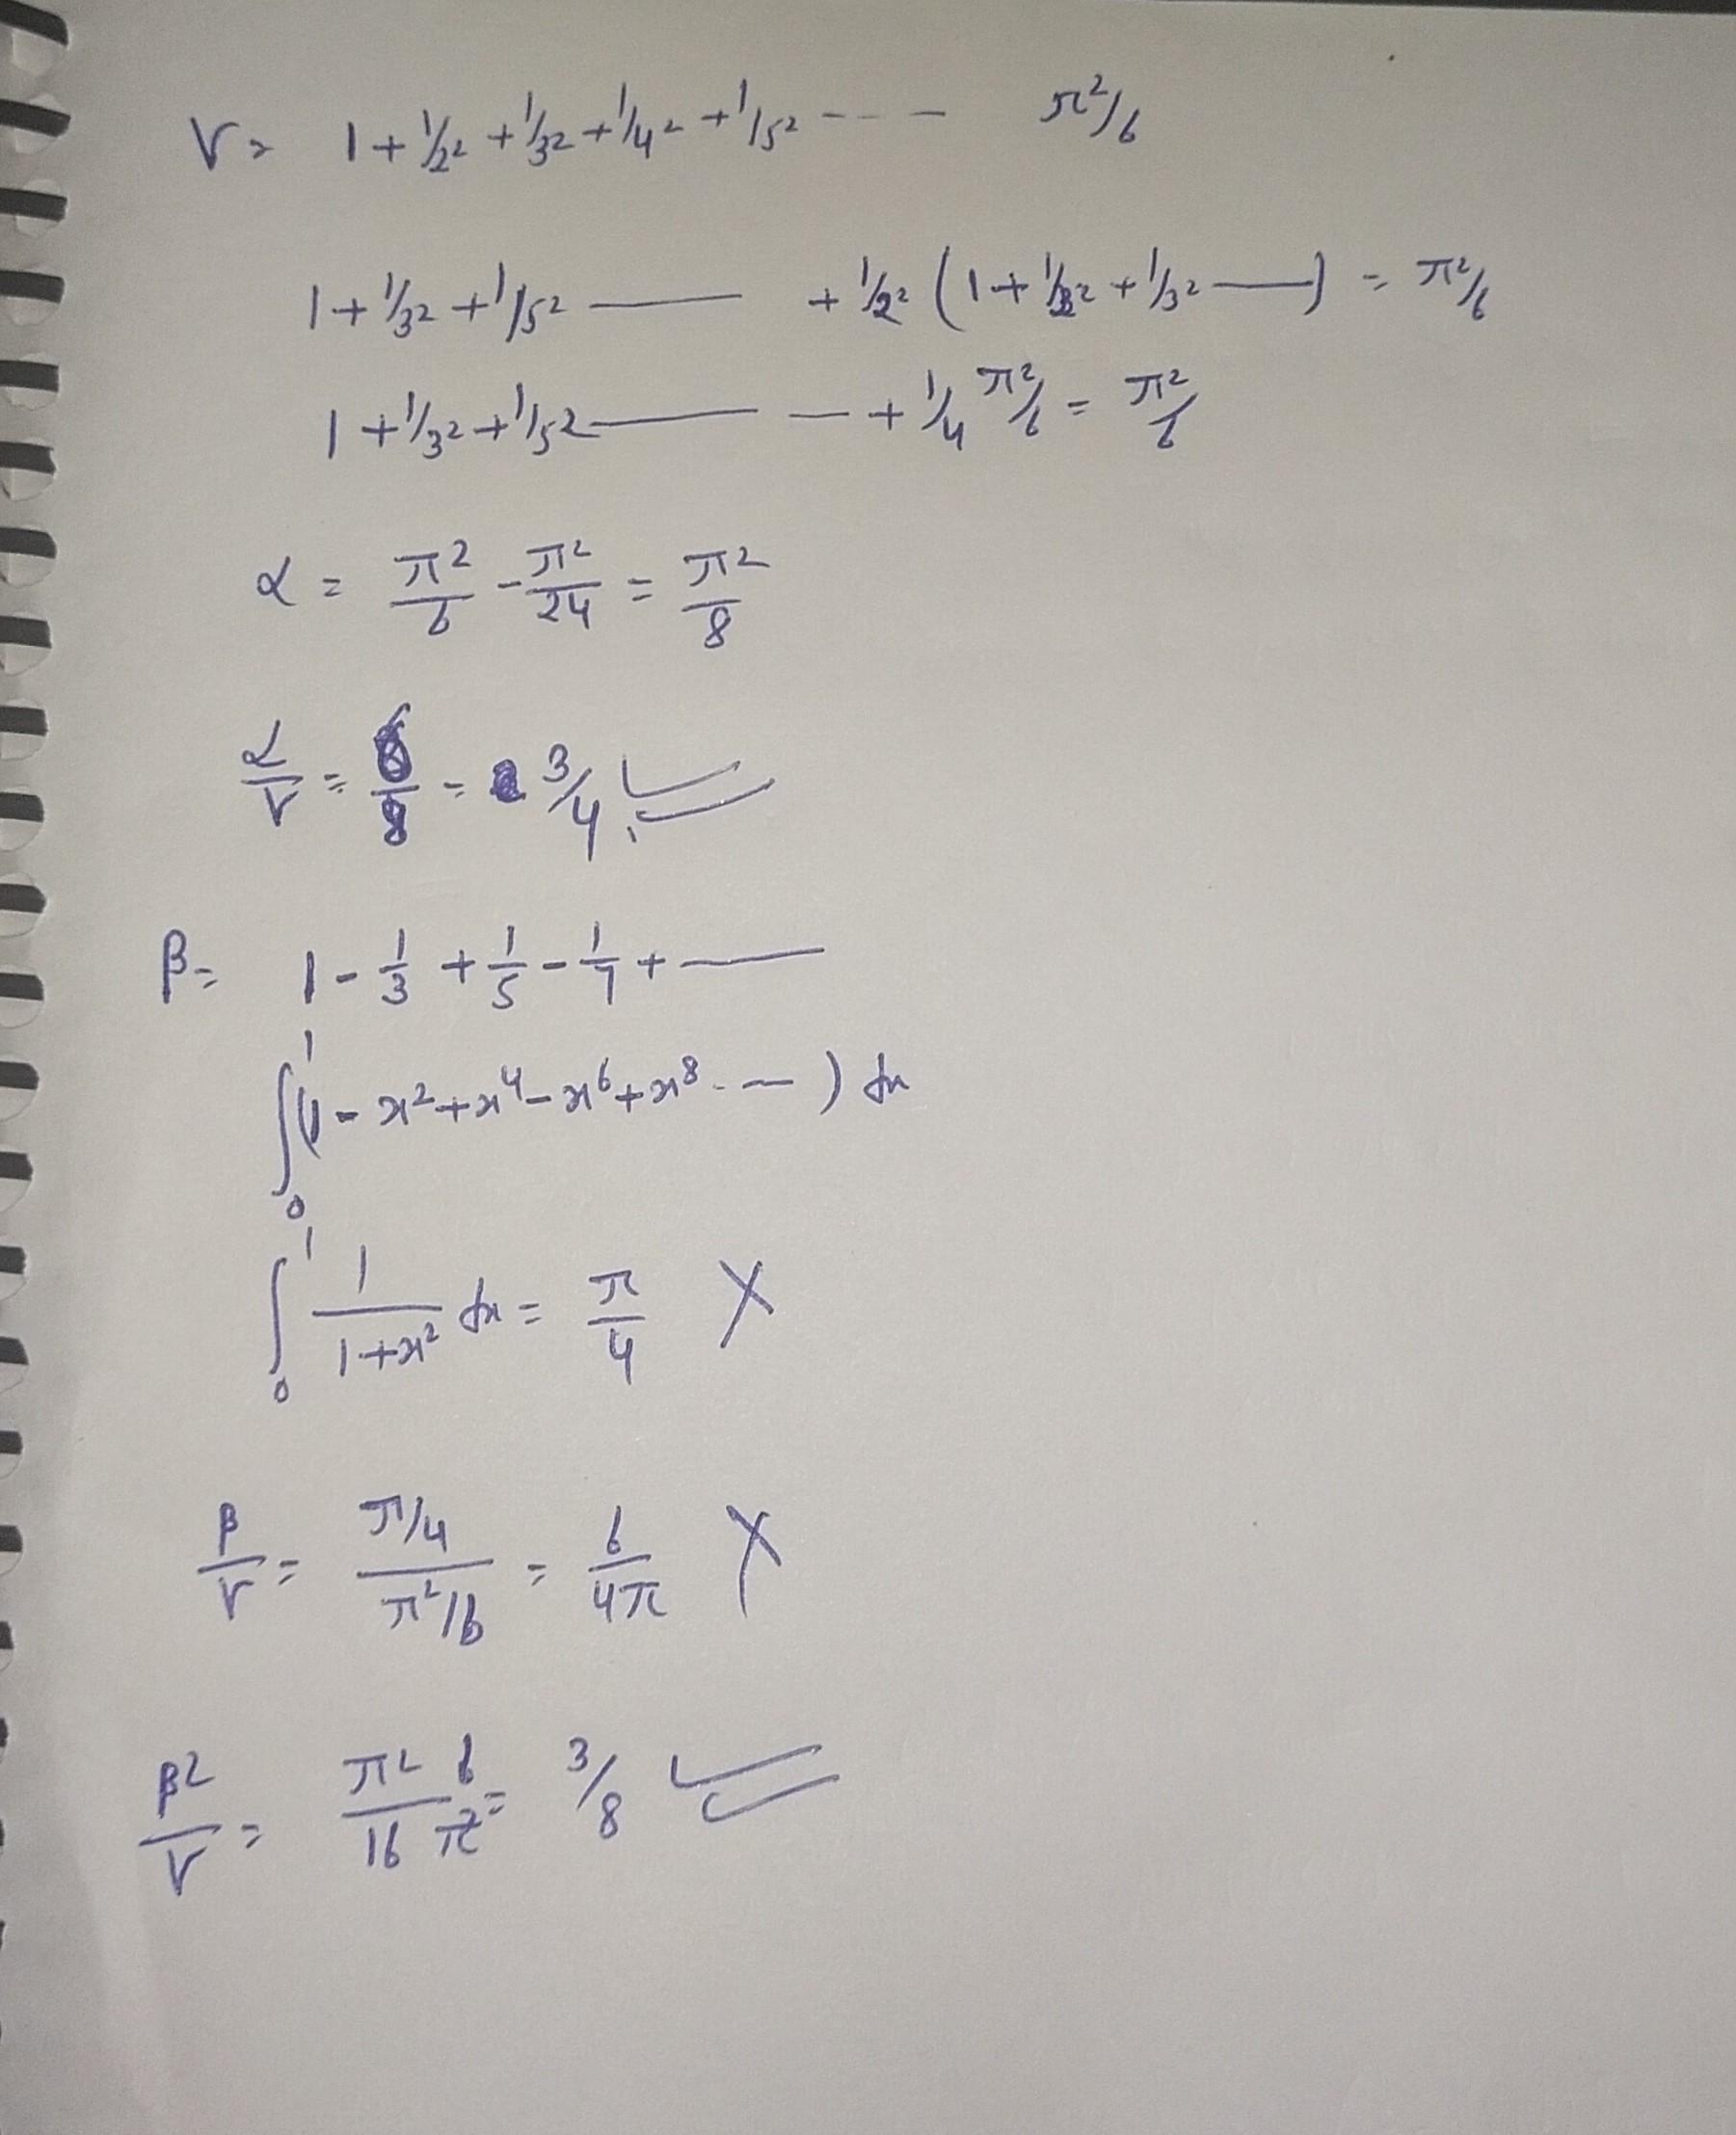 γ = 1 + 1/2² + 1/3² + 1/4² + 1/5² - - - - π²/6
1 + 1/3² + 1/5² —— + 1/2² (1 + 1/2² + 1/3² ——) = π²/6
1 + 1/3² + 1/5² —— — + 1/4 π²/6 = π²/6
α = π²/6 - π²/24 = π²/8
α/γ = 6/8 = 3/4 ✓
β = 1 - 1/3 + 1/5 - 1/7 + ——
∫₀¹ (1 - x² + x⁴ - x⁶ + x⁸ - - —) dx
∫₀¹ 1/(1+x²) dx = π/4 ✗
β/γ = (π/4)/(π²/6) = 6/4π ✗
β²/γ = π²/16 6/π² = 3/8 ✓